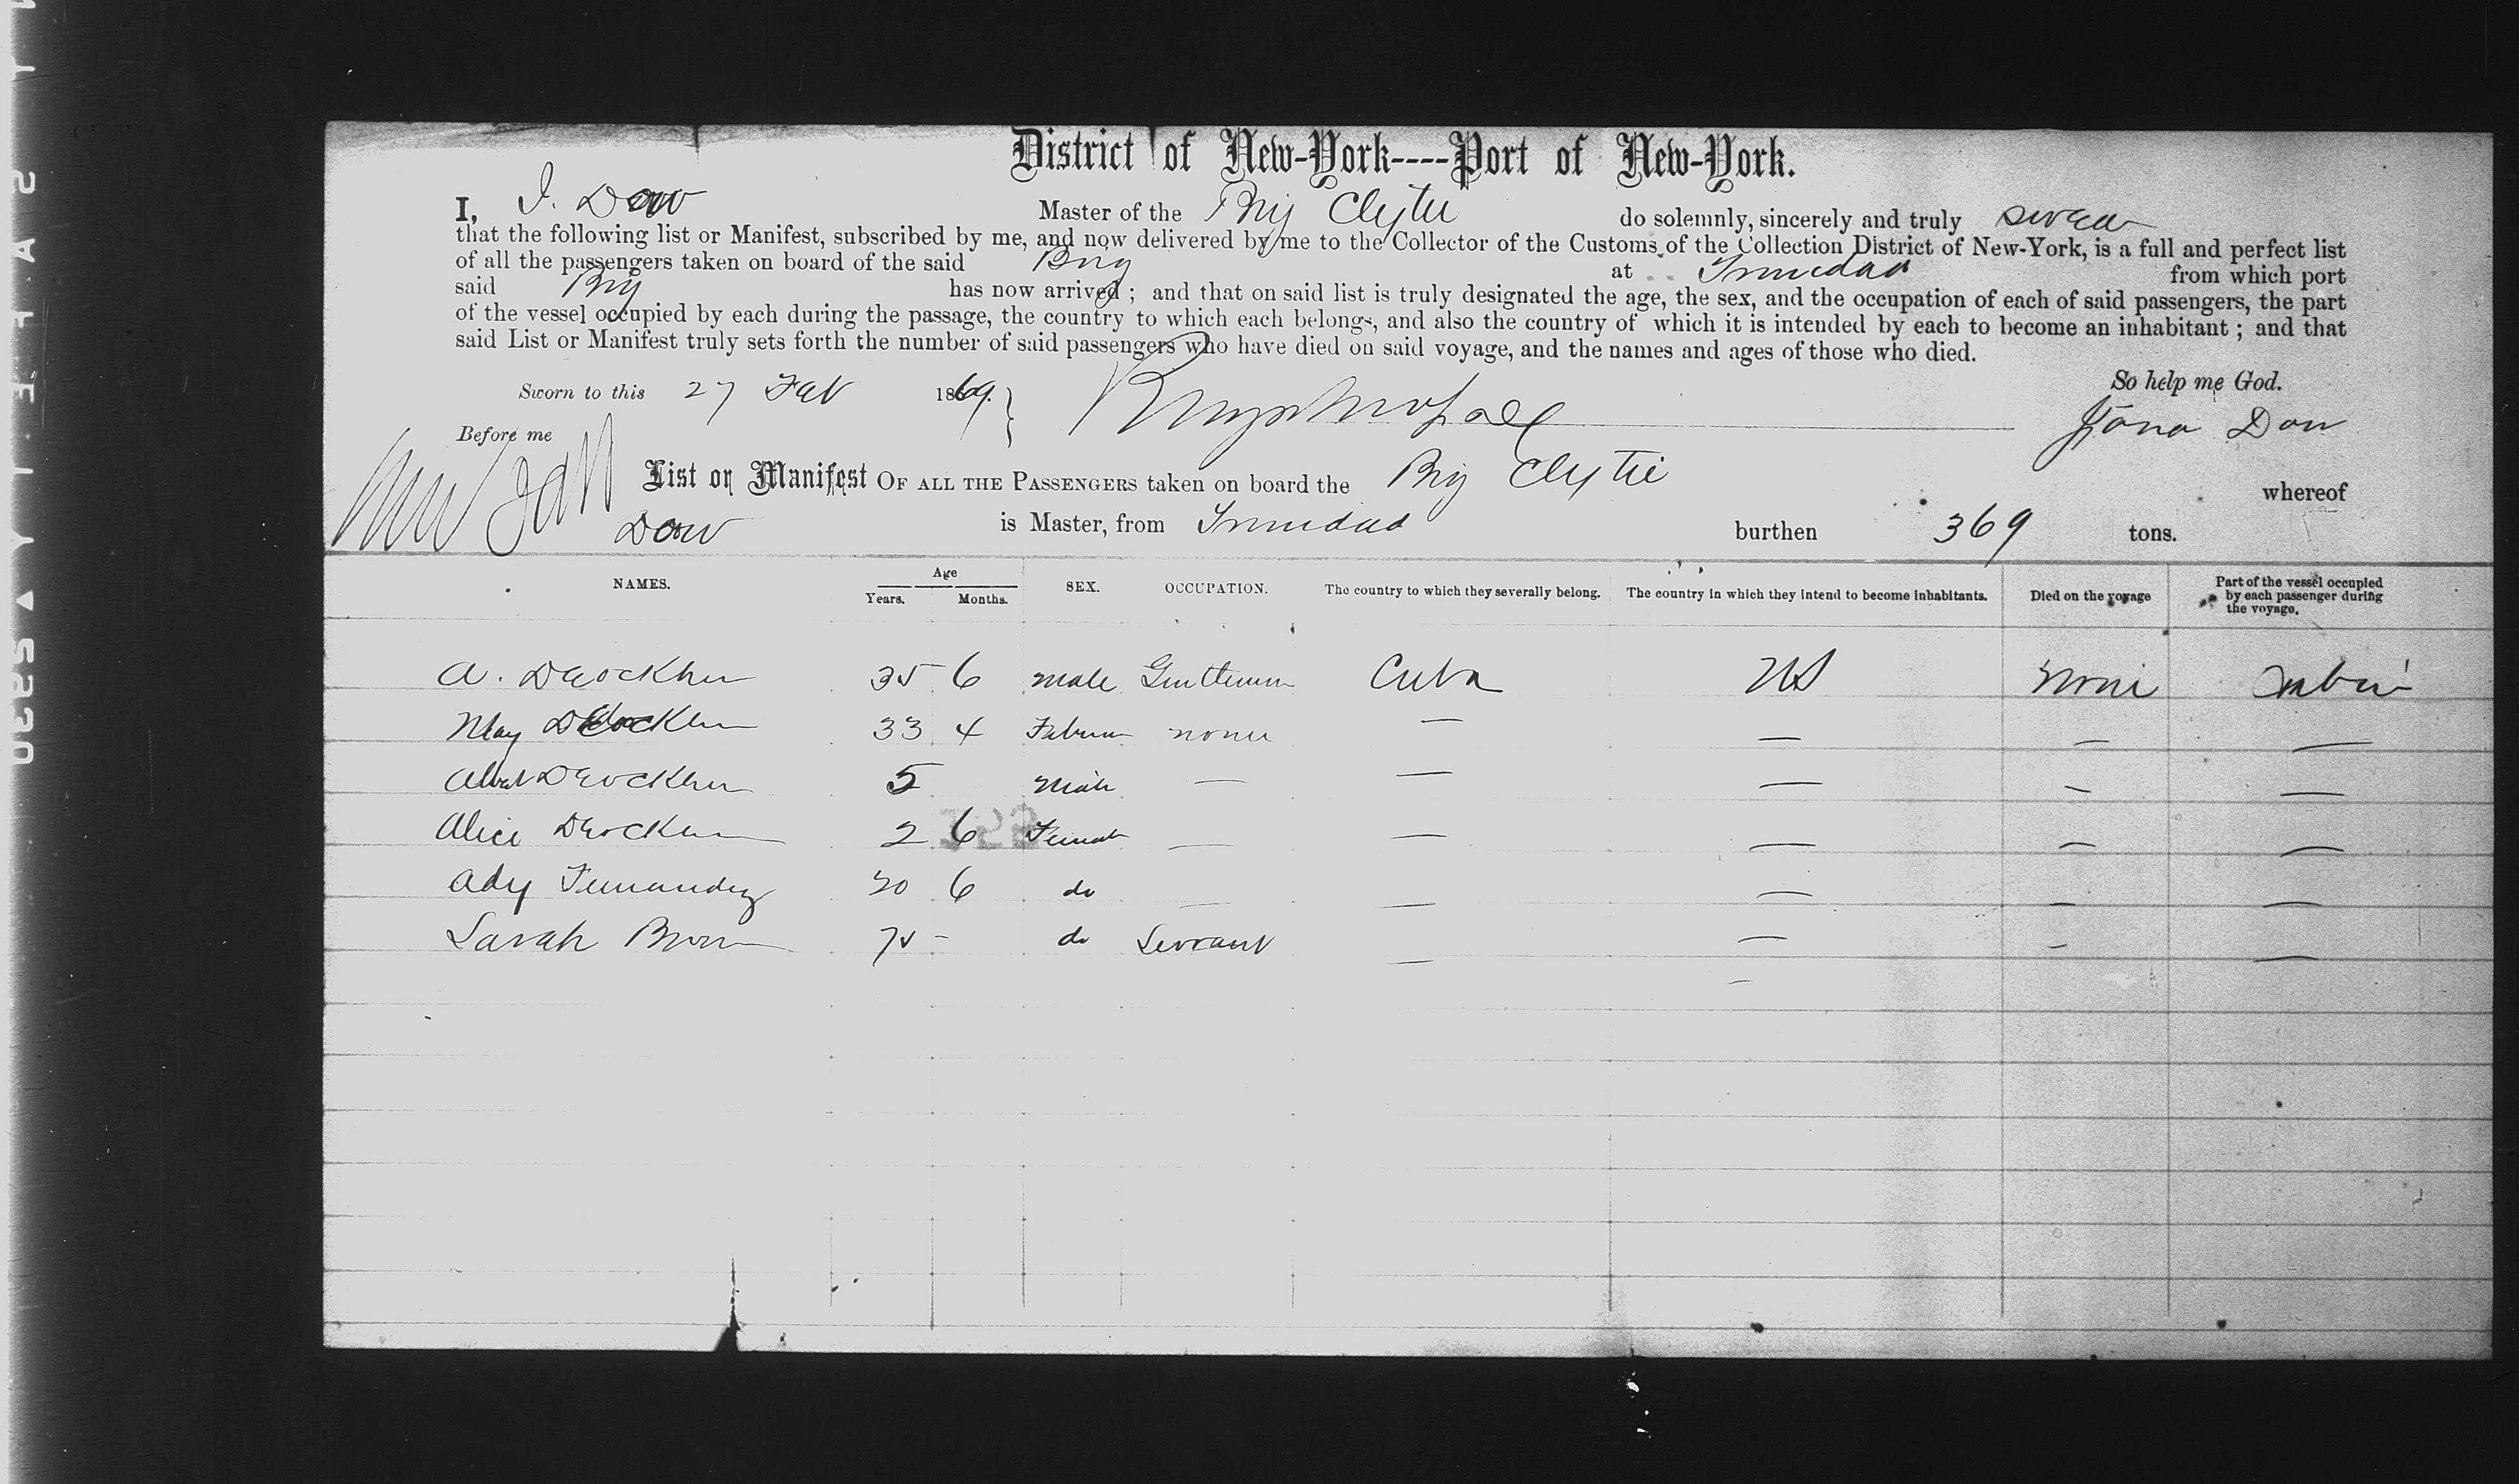 District of New-York----Port of New-York.
I, J. Dow Master of the Brig Clytie do solemnly, sincerely and truly swear
that the following list or Manifest, subscribed by me, and now delivered by me to the Collector of the Customs of the Collection District of New-York, is a full and perfect list
of all the passengers taken on board of the said Brig at Trinidad from which port
said Brig has now arrived ; and that on said list is truly designated the age, the sex, and the occupation of each of said passengers, the part
of the vessel occupied by each during the passage, the country to which each belongs, and also the country of which it is intended by each to become an inhabitant ; and that
said List or Manifest truly sets forth the number of said passengers who have died on said voyage, and the names and ages of those who died.
So help me God.
Sworn to this 27 Feb 1869.
Before me Dow
List or Manifest OF ALL THE PASSENGERS taken on board the Brig Clytie whereof
Dow is Master, from Trinidad burthen 369 tons.
NAMES. Age Years. Months. SEX. OCCUPATION. The country to which they severally belong. The country in which they intend to become inhabitants. Died on the voyage Part of the vessel occupied by each passenger during the voyage.
A. 35 6 male Gentleman Cuba US None Cabin
May 33 4 none — — — —
5 Male — — — — —
Alice 2 6 Female — — — — —
Ady Fernandez 6 do — — — — —
Sarah Brown - do Servant — — — —